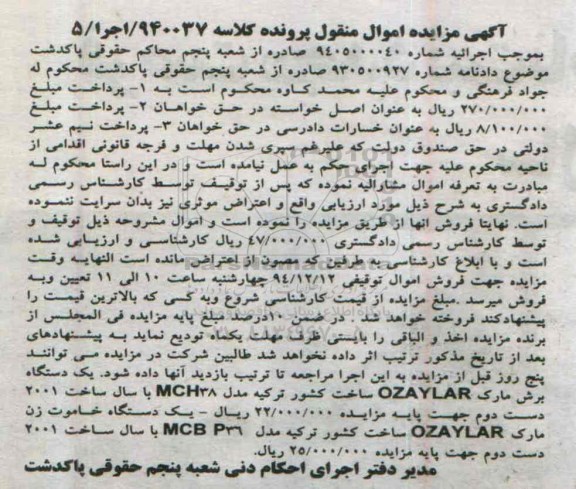 آگهی مزایده اموال منقول پرونده کلاسه ۹۴۰۰۳۷/اجرا/۵
بموجب اجرائیه شماره ۹۴۰۵۰۰۰۰۴۰ صادره از شعبه پنجم محاکم حقوقی پاکدشت
موضوع دادنامه شماره ۹۳۰۵۰۰۹۲۷ صادره از شعبه پنجم حقوقی پاکدشت محکوم له
جواد فرهنگی و محکوم علیه محمد کاوه محکوم است به ۱- پرداخت مبلغ
۲۷۰/۰۰۰/۰۰۰ ریال به عنوان اصل خواسته در حق خواهان ۲- پرداخت مبلغ
۸/۱۰۰/۰۰۰ ریال به عنوان خسارات دادرسی در حق خواهان ۳- پرداخت نیم عشر
دولتی در حق صندوق دولت که علیرغم سپری شدن مهلت و فرجه قانونی اقدامی از
ناحیه محکوم علیه جهت اجرای حکم به عمل نیامده است و در این راستا محکوم له
مبادرت به تعرفه اموال مشارالیه نموده که پس از توقیف توسط کارشناس رسمی
دادگستری به شرح ذیل مورد ارزیابی واقع و اعتراض موثری نیز بدان سرایت ننموده
است. نهایتا فروش آنها از طریق مزایده را نموده است و اموال مشروحه ذیل توقیف و
توسط کارشناس رسمی دادگستری ۴۷/۰۰۰/۰۰۰ ریال کارشناسی و ارزیابی شده
است و با ابلاغ کارشناسی به طرفین که مصون از اعتراض مانده است النهایه وقت
مزایده جهت فروش اموال توقیفی ۹۴/۱۲/۱۲ چهارشنبه ساعت ۱۰ الی ۱۱ تعیین وبه
فروش میرسد .مبلغ مزایده از قیمت کارشناسی شروع وبه کسی که بالاترین قیمت را
پیشنهادکند فروخته خواهد شد . در ضمن ۱۰درصد مبلغ پایه مزایده فی المجلس از
برنده مزایده اخذ و الباقی را بایستی ظرف مهلت یکماه تودیع نماید به پیشنهادهای
بعد از تاریخ مذکور ترتیب اثر داده نخواهد شد طالبین شرکت در مزایده می توانند
پنج روز قبل از مزایده به این اجرا مراجعه تا ترتیب بازدید آنها داده شود. یک دستگاه
برش مارک OZAYLAR ساخت کشور ترکیه مدل MCH۳۸ با سال ساخت ۲۰۰۱
دست دوم جهت پایه مزایده ۲۲/۰۰۰/۰۰۰ ریال - یک دستگاه خاموت زن
مارک OZAYLAR ساخت کشور ترکیه مدل MCB P۳۶ با سال ساخت ۲۰۰۱
دست دوم جهت پایه مزایده ۲۵/۰۰۰/۰۰۰ ریال.
مدیر دفتر اجرای احکام دنی شعبه پنجم حقوقی پاکدشت